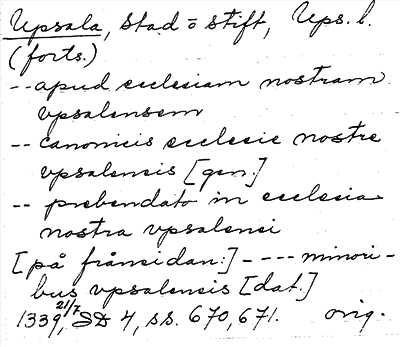 Upsala, stad o stift, Ups. l.
(forts.)
-- apud ecclesiam nostram
vpsalensem
-- canonicis ecclesie nostre
vpsalensis [gen.]
-- prebendato in ecclesia
nostra vpsalensi
[på frånsidan:] - --- minori-
bus vpsalensis [dat.]
1339 21/7, SD 4, ss. 670, 671. orig.